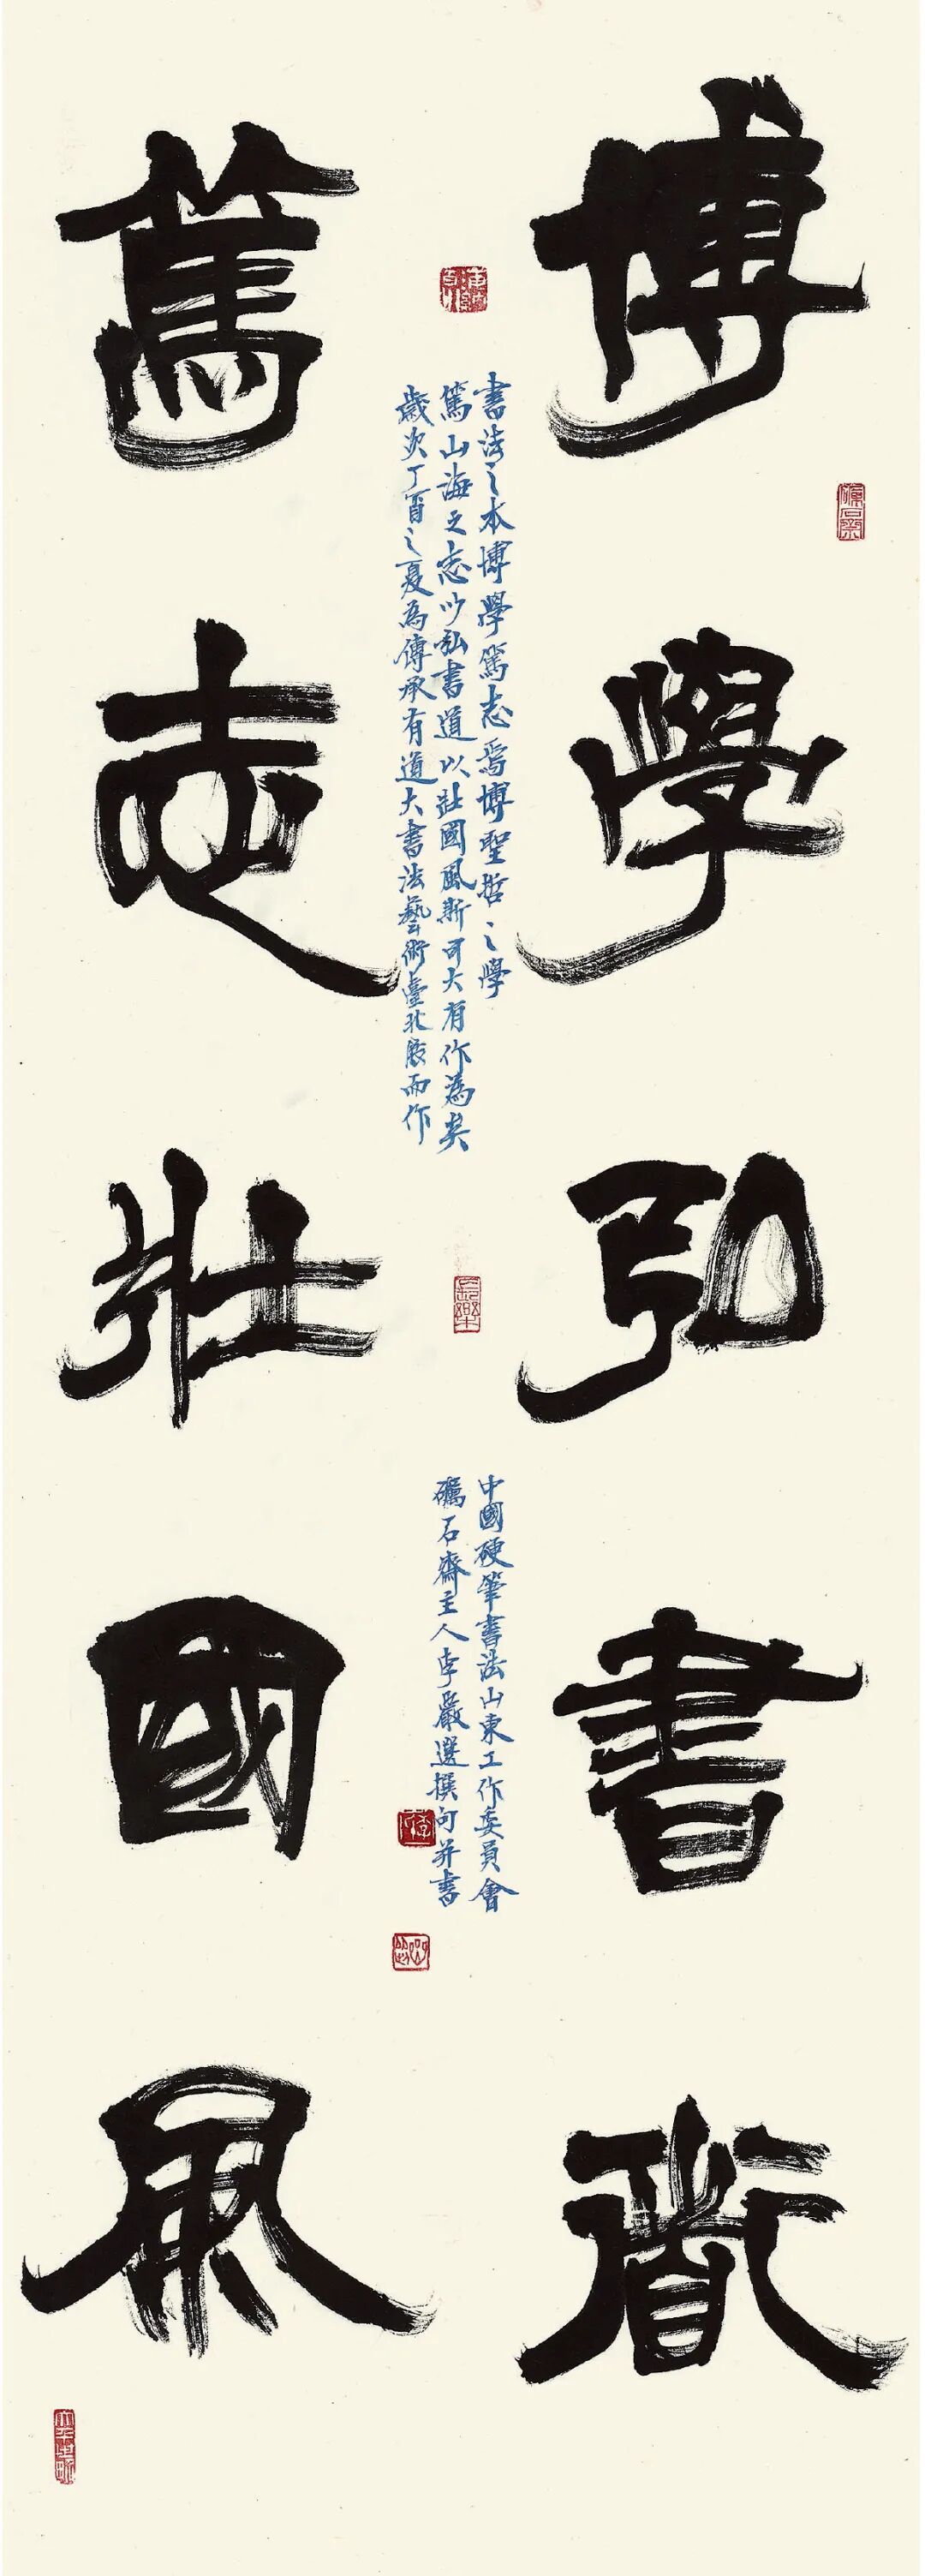 博學弘書道
篤志壯國風
書法之本博學篤志焉博聖哲之學
篤山海之志以弘書道以壯國風斯可大有作為矣
歲次丁酉之夏為傳承有道大書法藝術臺北展而作
中國硬筆書法山東工作委員會
礪石齋主人李嚴選撰句并書